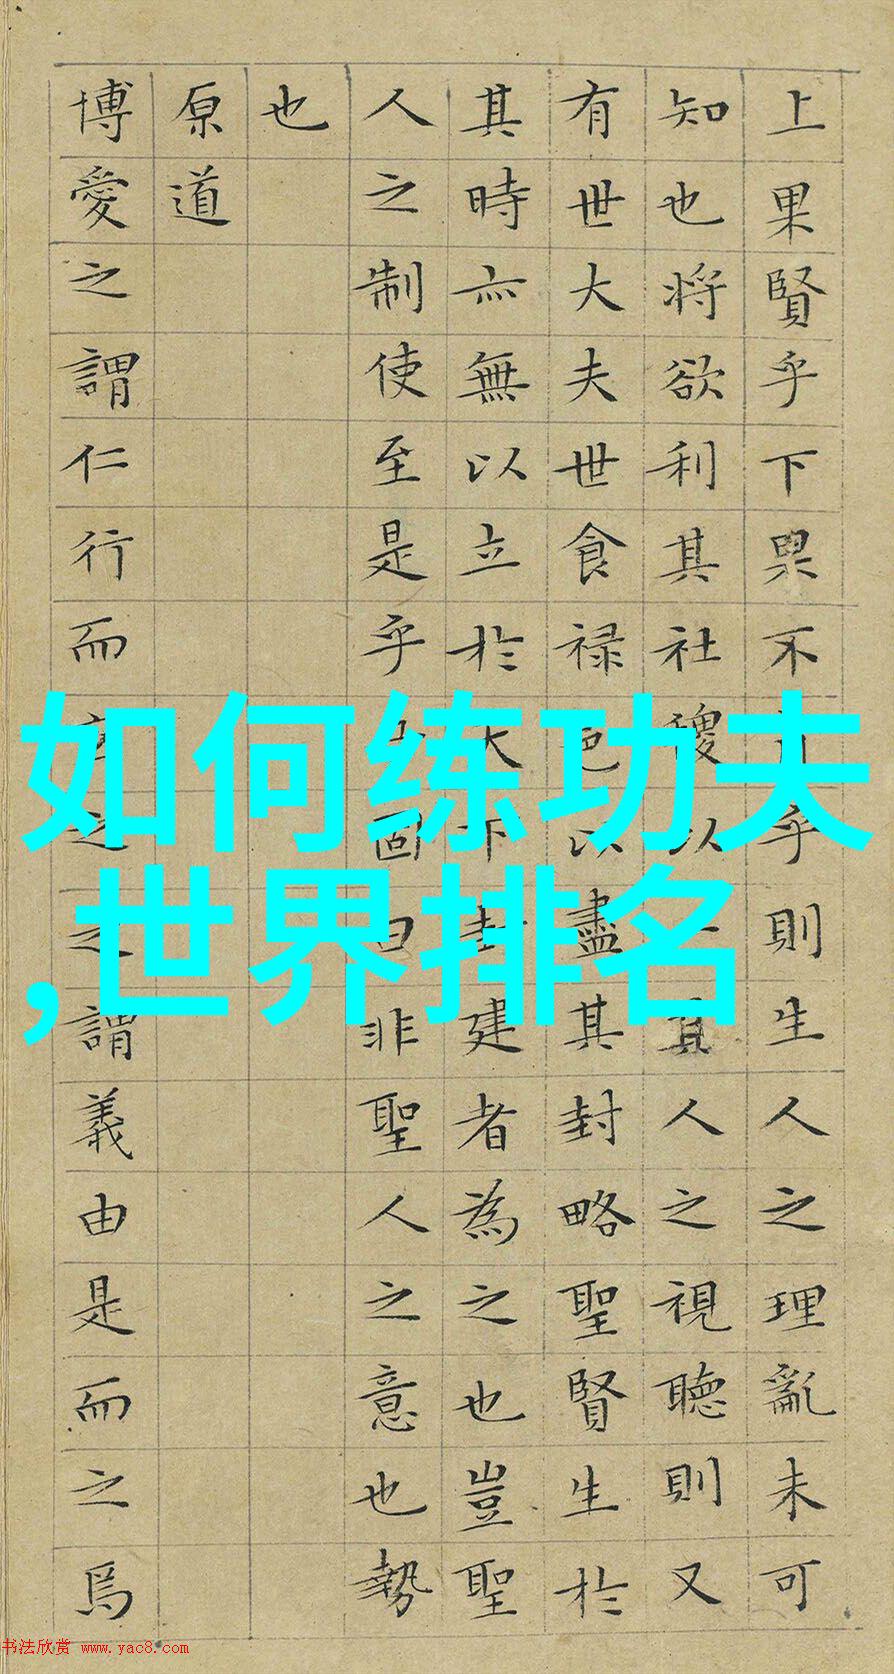 上果賢乎下果不乎則生人之理亂未可
知也将欲利其社稷以一其人之視聽則又
有世大夫世食禄邑以盡其封略聖賢生於
其時亦無以立於天下封建者為之也豈聖
人之制使至是乎固曰非聖人之意也勢
也
原道
博愛之謂仁行而宜之之謂義由是而之焉
如何练功夫
,世界排名
书法欣赏 www.yac8.com